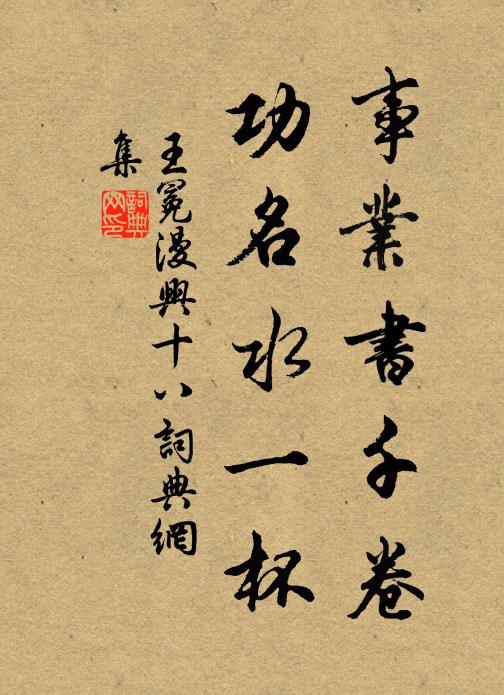 事業書千卷
功名水一杯
王冕漫興十八詞典網
集
詞典网印